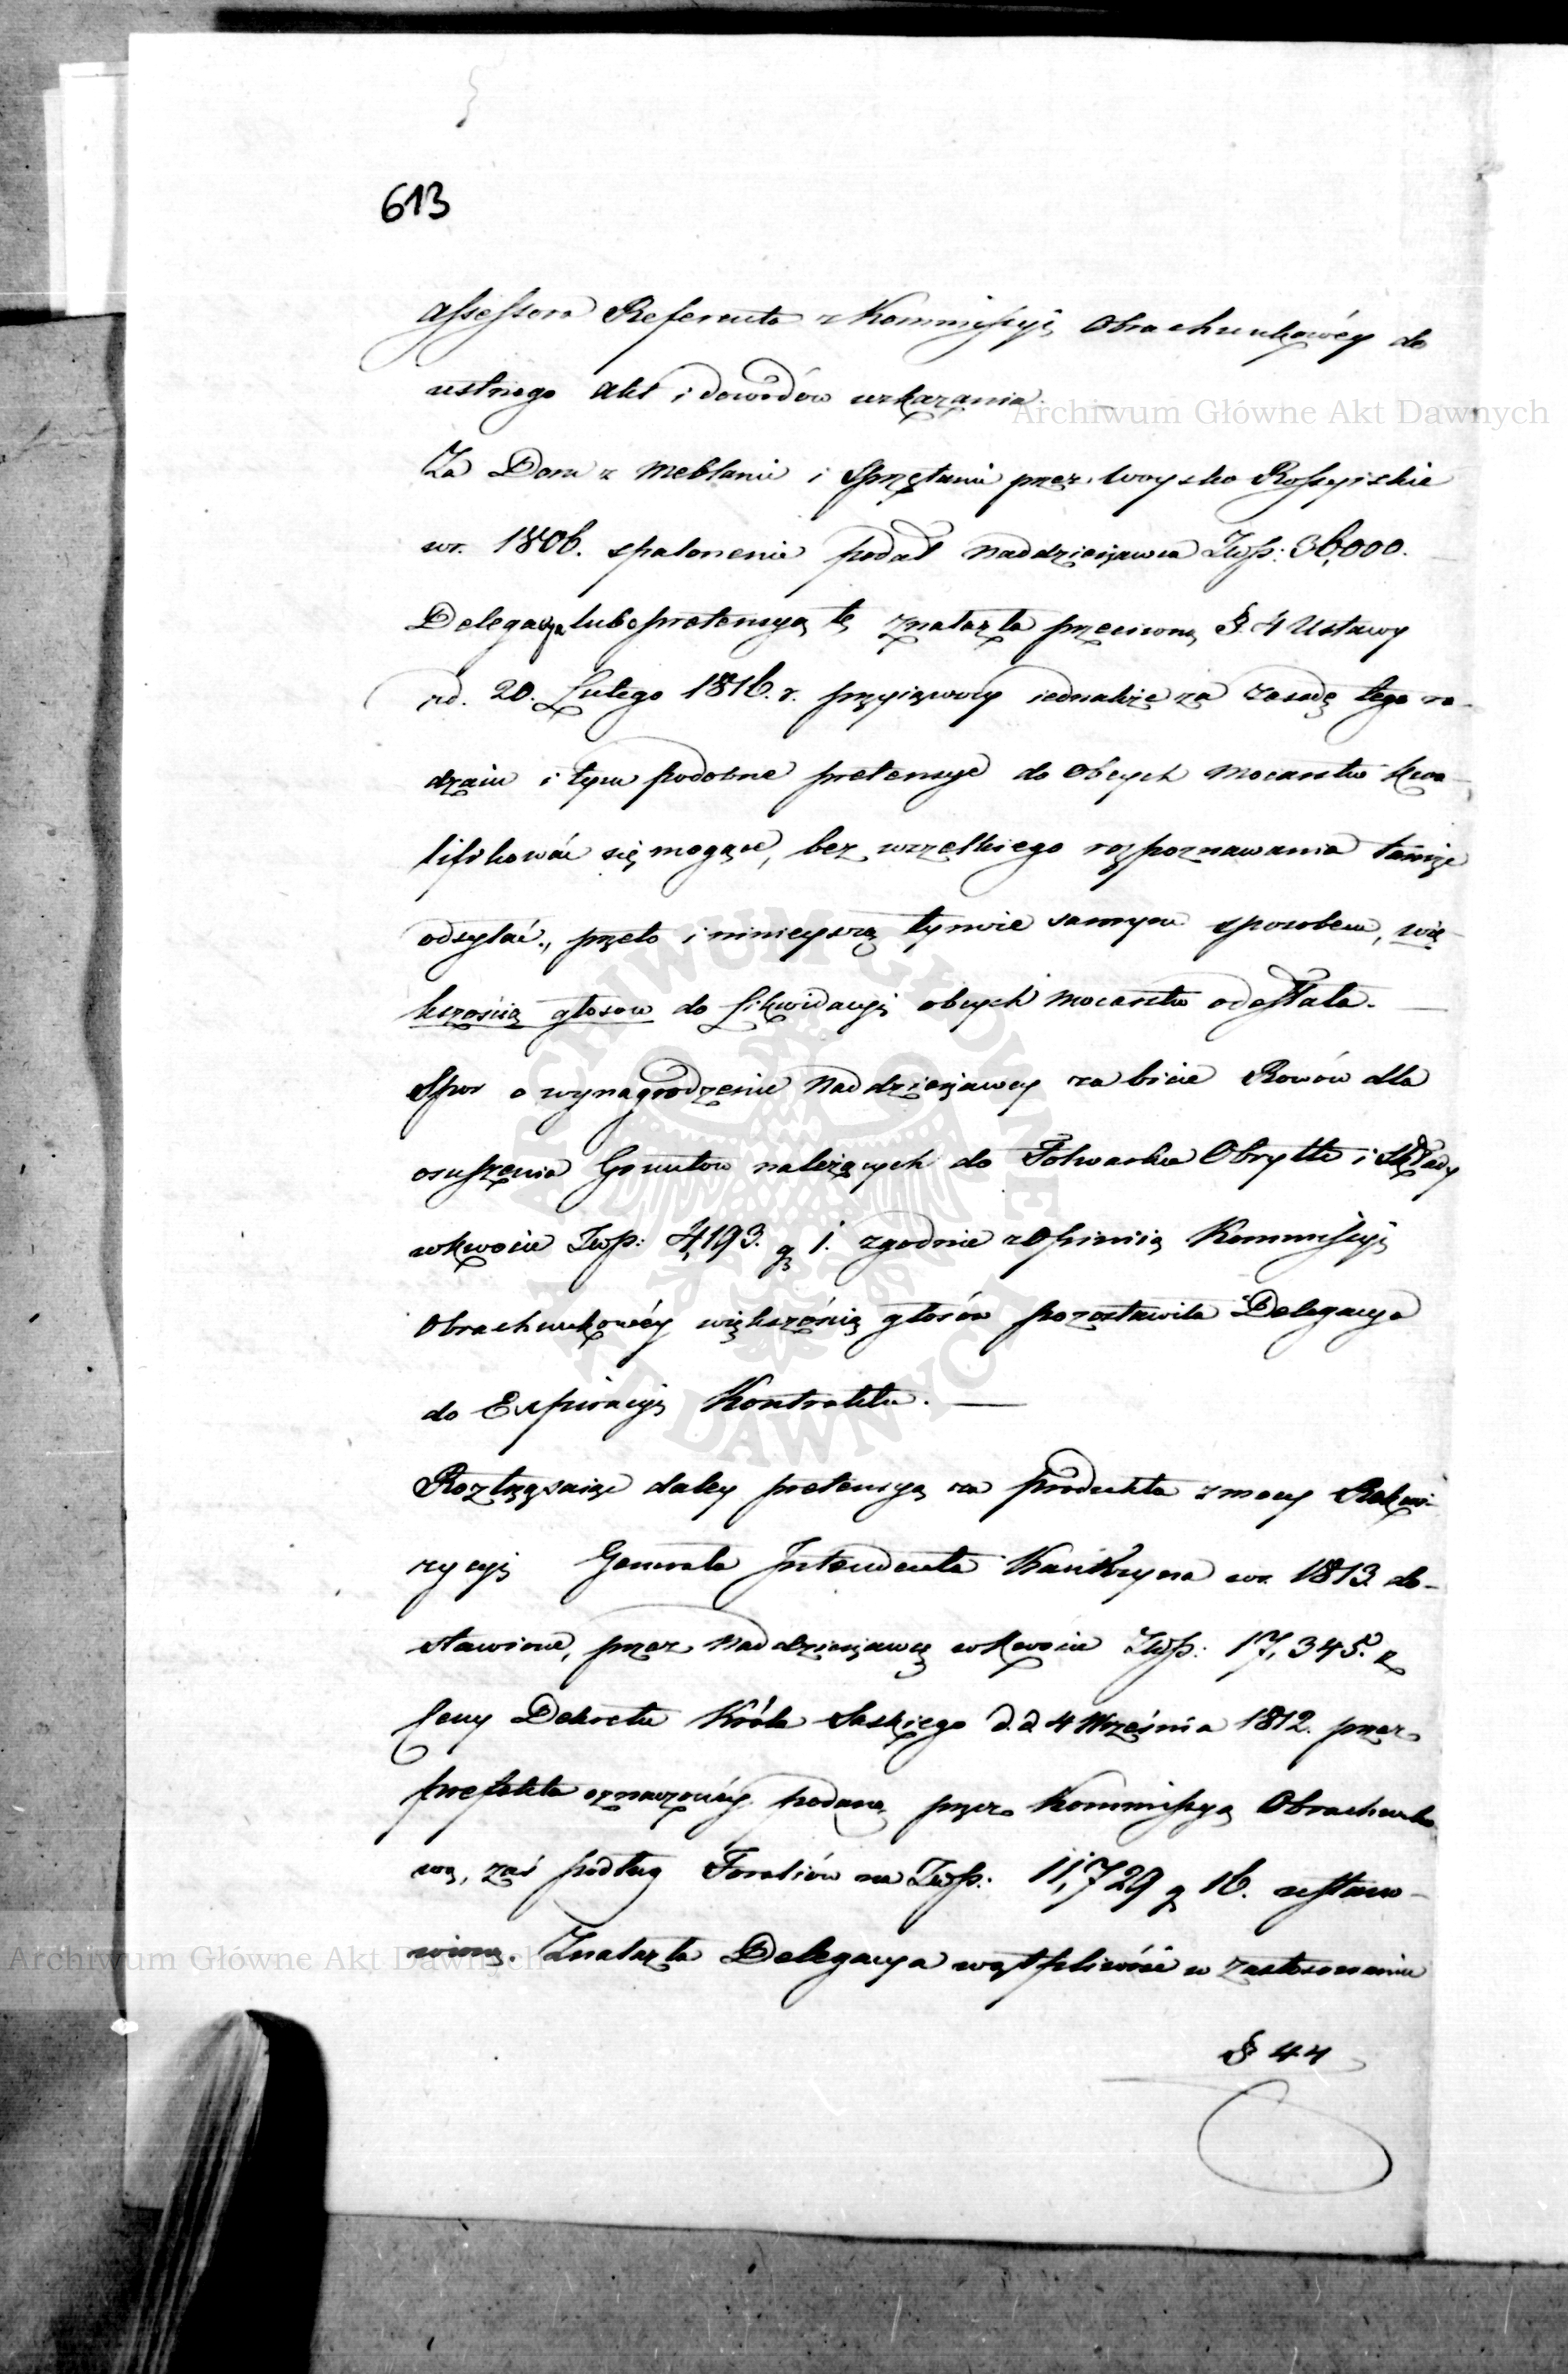 613
Assessora Referenta z Kommissyi Obrachunkowéy do
ustnego akt i dowodów wskazania.
Archiwum Główne Akt Dawnych
Za Dom z Meblami i Sprzętami przez Woysko Rossyiskie
w r. 1806. spalonemi podał Naddzierżawca Złłp: 36,000.
Delegacya lubo pretensyą tę znalazła przeciwną §. 4 Ustawy
d. 20. Lutego 1816. r. przyiąwszy iednakże za zasadę tego ro-
dzaiu i tym podobne pretensye do Obcych Mocarstw kwa-
lifikować się mogące, bez wszelkiego rozpoznawania tamże
odsyłać., przeto i ninieyszą tymże samym sposobem, wię-
kszością głosow do Likwidacyi obcych Mocarstw odesłała. —
Spor o wynagrodzenie Naddzierżawcy za bicie Rowów dla
osuszenia Gruntow należących do Folwarku Obrytte i Składy
w kwocie Złłp: 4,193. g 1. zgodnie z Opinią Kommissyi
Obrachunkowéy większością głosów pozostawiła Delegacya
do Expiracyi Kontraktu. —
Roztrząsaiąc daley pretensyą za produkta z mocy Rekwi-
zycyi Generała Intendenta Kankryna w r. 1813. do-
stawione, przez Naddzierżawcę w kwocie Złłp: 17,345. z
Ceny Dekretu Króla Saskiego d. d 4 Września 1812. przez
prefekta oznaczonéy podaną, przez Kommissyą Obrachunko
wą, zaś podług Foraliów na Złłp: 11,729 g 16. ustano-
wioną. Znalazła Delegacya wątpliwość w zastosowaniu
Archiwum Główne Akt Dawnych
§ 44
ARCHIWUM GŁÓWNE
AKT DAWNYCH